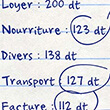 Loyer : 200 dt
Nourriture : 123 dt
Divers : 138 dt
Transport 127 dt
Facture : 112 dt